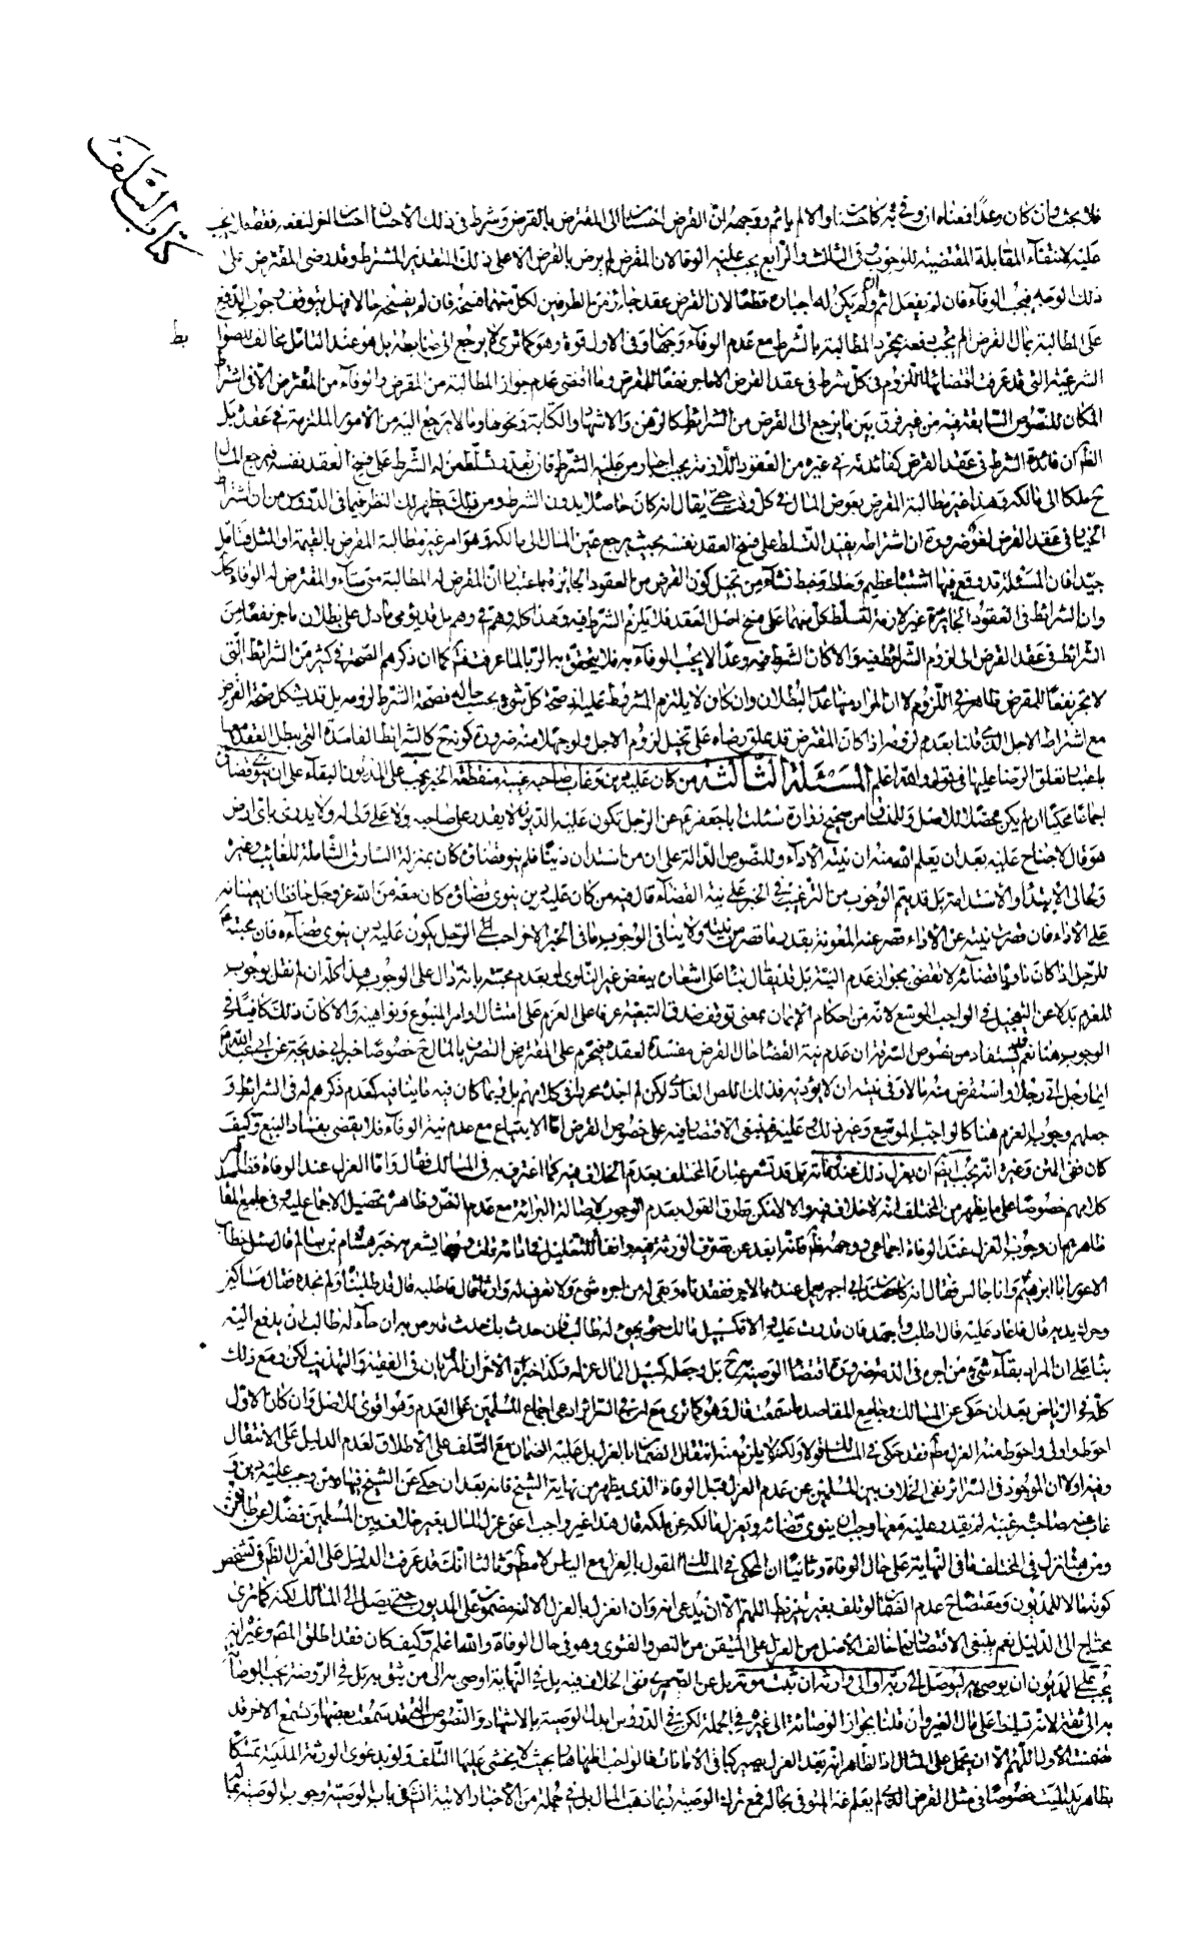 كتاب السلف
فلا بحث وان كان وعدا فعناه ان وفى به كان حسنا والا لم ياثم ووجهه ان القرض احسان الى المقترض بالقرض وشرط فى ذلك الاحسان احسانا اخر لنفعه فقط
عليه لانتفاء المقابلة المقتضية للوجوب وفى الثالث والرابع يجب عليه الوفا لان المقرض لم يرض بالقرض الا على ذلك التقدير المشترط وقد رضى المقترض على
ذلك الوجه فيجب الوفاء فان لم يفعل اثم ولم يكن له اجباره قطعا لان القرض عقد جائز من الطرفين لكل منهما فسخه فان لم يفسخه حالا فهل يتوقف وجوب الدفع
على المطالبة بمال القرض ام يجب دفعه بمجرد المطالبة بالشرط مع عدم الوفاء وجهان وفى الاول قوة وهو كما ترى لا يرجع الى ضابطة بل هو عند التامل مخالف
الشرعية التى قد عرفت اقتضائها اللزوم فى كل شرط فى عقد القرض الا ما جر نفعا للمقرض وما اقتضى عدم جواز المطالبة من المقرض والوفاء من المقترض الا فى اشتراط
المكان للنصوص السابقة فيه من غير فرق بين ما يرجع الى القرض من الشرائط كالرهن والاشهاد والكتابة ونحوها وما لا يرجع اليه من الامور الملتزمة فى عقده بل
الظ ان فائدة الشرط فى عقد القرض كفائدته فى غيره من العقود اللازمة يجب اجبار من عليه الشرط فان تعذر تسلط من له الشرط على فسخ العقد نفسه فيرجع المال
ح ملكا الى مالكه وهذا غير مطالبة المقرض بعوض المال فى كل وقت حتى يقال انه كان حاصلا بدون الشرط ومن ذلك يظهر لك النظر فيما فى الدروس من ان اشتراط
الخيار فى عقد القرض لغو ضرورة ان اشتراطه يفيد التسلط على فسخ العقد نفسه بحيث يرجع عين المال الى مالكه وهو امر غير مطالبة المقرض بالقيمة او المثل فتامل
جيدا فان المسئلة قد وقع فيها اشتباه عظيم وخلط وخبط نشاء من تخيل كون القرض من العقود الجائزة باعتبار ان المقرض له المطالبة متى شاء والمقترض له الوفاء كك
وان الشرائط فى العقود الجائزة غير لازمة لتسلط كل منهما على فسخ اصل العقد فلا يلزم الشرط فيه وهذا كله وهم فى وهم بل قد يؤمى ما دل على بطلان ما جر نفعا من
الشرائط فى عقد القرض الى لزوم الشرائط فيه والا كان الشرط فيه وعدا لا يجب الوفاء به فلا يتحقق به الربا لما عرفت فت كما ان ذكرهم الصحة فى كثير من الشرائط التى
لا تجر نفعا للمقرض ظاهر فى اللزوم لان المراد منها عدم البطلان وان كان لا يلتزم المشروط عليه اذ صحة كل شئ بحسب حاله فصحة الشرط لزومه بل قد يشكل صحة القرض
مع اشتراط الاجل الذى قلنا بعدم لزومه اذا كان المقترض قد علق رضاه على تخيل لزوم الاجل ولو جهلا منه ضرورة كونه ح كالشرائط الفاسدة التى يبطل العقد معها
باعتبار تعلق الرضا عليها فى قوله والله اعلم المسئلة الثالثة من كان عليه دين وغاب صاحبه غيبة منقطعة الخبر يجب على المديون البقاء على ان ينوى قضاؤه
اجماعا محكيا ان لم يكن محصلا للاصل وللمستفاد من صحيح زرارة سئلت ابا جعفر ع عن الرجل يكون عليه الدين لا يقدر على صاحبه ولا على ولى له ولا يدرى باى ارض
هو قال لا جناح عليه بعد ان يعلم الله منه ان نيته الاداء وللنصوص الدالة على ان من استدان دينا فلم ينو قضاؤه كان بمنزلة السارق الشاملة للغائب وغيره
وبحالى الابتداء والاستدامة بل قد يتم الوجوب من الترغيب فى الخبر على نية القضاء قال فيه من كان عليه دين ينوى قضاؤه كان معه من الله عز وجل حافظان يعينانه
على الاداء فان قصرت نيته عن الاداء قصر عنه المعونة بقدر ما قصر من نيته ولا ينافى الوجوب ما فى الخبر الاخر احب الى الرجل يكون عليه دين ينوى قضاءه فان محبته ع
للرجل اذا كان ناويا قضائه لا تقضى بجواز عدم النية بل قد يقال بناء على اشعاره ببغض غير الناوى او بعدم محبته بانه دال على الوجوب هذا كله ان لم نقل بوجوب
العزم بدلا عن التعجيل فى الواجب الموسع لانه من احكام الايمان بمعنى توقف صدق التبعية عرفا على العزم على امتثال اوامر المتبوع ونواهيه والا كان ذلك كافيا فى
الوجوب هنا نعم قد يستفاد من نصوص السرقة ان عدم نية القضاء حال القرض مفسدة لعقد فيحرم على المقترض التصرف بالمال ح خصوصا خبر ابى خديجة عن ابى عبد الله ع
ايما رجل اتى رجلا واستقرض منه مالا وفى نيته ان لا يؤديه فذلك اللص العادى لكن لم اجده محررا فى كلامهم بل ربما كان فيه ما ينافيه كعدم ذكرهم له فى الشرائط و
جعلهم وجوب العزم هنا كالواجب الموسع وغير ذلك وعليه فينبغى الاقتصار فيه على خصوص القرض اما الابتياع مع عدم نية الوفاء فلا يقضى بفساد البيع وكيف
كان ففى المتن وغيره انه يجب ايضا ان يعزل ذلك عند وفاته بل قد تشعر عبارة المختلف بعدم الخلاف فيه كما اعترف به فى المسالك فقال واما العزل عند الوفاة فظاهر
كلامهم خصوصا على ما يظهر من المختلف انه لا خلاف فيه والا لامكن تطرق القول بعدم الوجوب لاصالة البرائة مع عدم النص وظاهره تحصيل الاجماع عليه وفى جامع المقا
ظاهرهم ان وجوب العزل عند الوفاة اجماعى ووجهه ظ فانه ابعد عن تصرف الورثة فيه وانفا للتعليل بقائه قلت وربما يشعر به خبر هشام بن سالم قال سئل خطاب
الاعور ابا ابراهيم ع وانا جالس فقال انه كان عند ابى اجير يعمل عنده بالاجر ففقدناه وبقى له من اجره شئ ولا نعرف له وارثا قال فاطلبه قال قد طلبناه ولم نجده فقال مساكين
وحرك يديه قال فاعاد عليه قال اطلب واجهد فان قدرت عليه والا فكسبيل مالك حتى يجئ له طالب فان حدث بك حدث فاوص به ان جاء له طالب ان يدفع اليه
بناء على ان المراد بقاء شئ من اجره فى الذمة ضرورة اقتضاء الوصية به ح بل وجعله كسبيل المال عزله وكذا خبراه الاخران المرويان فى الفقيه والتهذيب لكن ومع ذلك
كله فى الرياض بعد ان حكى عن المسالك وجامع المقاصد ما سمعت قال وهو كما ترى مع ان فى السرائر ادعى اجماع المسلمين على العدم وهو اقوى للاصل وان كان الاول
احوط واولى واحوط منه العزل مط فقد حكى فى المسالك قولا ولكنه لا يلزم منه انتقال الضمان بالعزل بل عليه الضمان مع التلف على الاطلاق لعدم الدليل على الانتقال
وفيه اولا ان الموجود فى السرائر نفى الخلاف بين المسلمين عن عدم العزل قبل الوفاة الذى يظهر من نهاية الشيخ فانه بعد ان حكى عن الشيخ فيها ومن وجب عليه دين و
غاب عنه صاحبه غيبة لم يقدر عليه معها وجب ان ينوى قضائه ويعزل ماله عن ملكه قال هذا غير واجب اعنى عزل المال بغير خلاف بين المسلمين فضلا عن طائفتنا
ومن هنا نزل فى المختلف ما فى النهاية على حال الوفاة وثانيا ان المحكى فى المسالك القول بالعزل مع الياس لا مط وثالثا انك قد عرفت الدليل على العزل الظ فى تشخص
كونه مالا للمديون ومقتضاه ح عدم الضمان لو تلف بغير تفريط اللهم الا ان يدعى انه وان انعزل بالعزل الا انه مضمون على المديون حتى يصل الى المالك لكنه كما ترى
محتاج الى الدليل نعم ينبغى الاقتصار فيما خالف الاصل من العزل على المتيقن من النص والفتوى وهو فى حال الوفاة والله اعلم وكيف كان فقد اطلق المصه وغيره انه
يجب على المديون ان يوصى به ليوصل الى ربه او الى وارثه ان ثبت موته بل عن الصيمرى نفى الخلاف فيه بل فى النهاية اوصى به الى من يثق به بل فى الروضة يجب الوصاء
به الى ثقة لانه تسليط على مال الغير وان قلنا بجواز الوصاية الى غيره فى الجملة لكن فى الدروس ابدال الوصية بالاشهاد والنصوص التى قد سمعت بعضها وتسمع الاخر قد
تضمنت الاول اللهم الا ان يحمل على المثال اذ الظاهر انه بعد العزل يصير كباقى الامانات فالواجب حفظها بحيث لا يخشى عليها التلف ولو بدعوى الورثة الملكية تمسكا
بظاهر يد الميت خصوصا فى مثل القرض الذى لم يعلم غير المتوفى بحاله فمع ترك الوصية ربما ذهب المال بل فى جملة من الاخبار الاتية انش فى باب الوصية وجوب الوصية بما